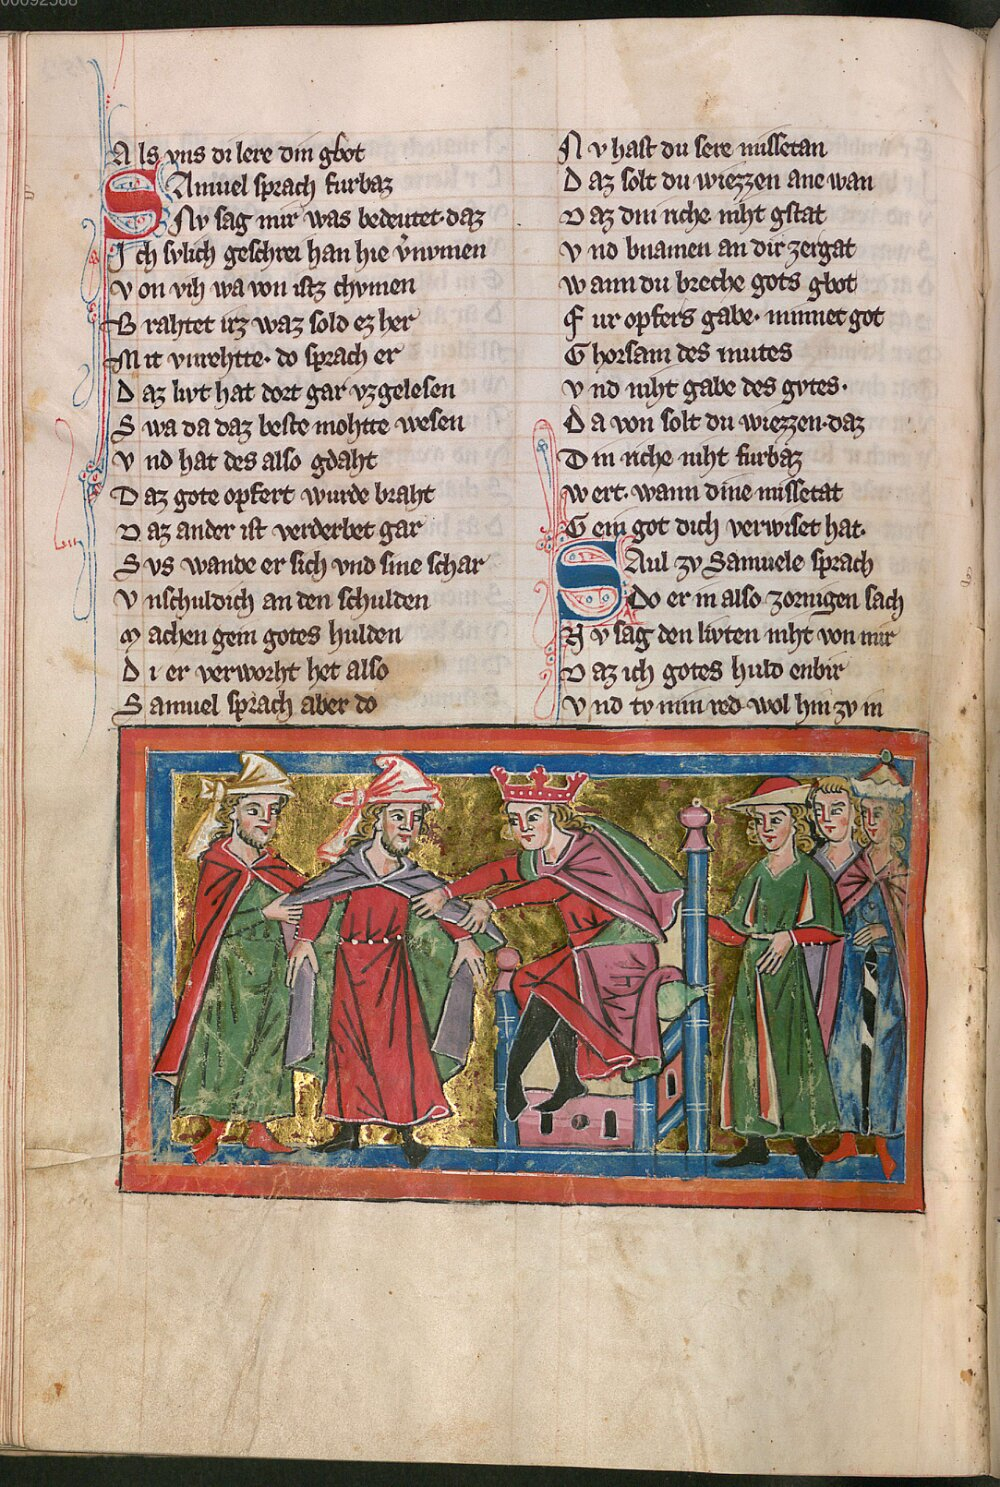 00092588
Als vns di lere din gbot
Samuel sprach furbaz
Nv sag mir was bedeutet·daz
Ich svlich geschrei han hie v̓nvmen
Von vih wa von istz chvmen
Brahtet irz waz sold ez her
Mit vnrehtte· do sprach er
Daz livt hat dort gar vzgelesen
Swa da daz beste mohtte wesen
Vnd hat des also gdaht
Daz gote opfert wurde braht
Daz ander ist verderbet gar
Svs wande er sich vnd sine schar
Vnschuldich an den schulden
Machen gein gotes hulden
Di er verworht het also
Samuel sprach aber do
Nv hast du sere missetan
Daz solt du wiezzen ane wan
Daz din riche niht gstat
Vnd bnamen an dir zergat
Wann du breche gots gbot
Fur opfers gabe· minnet got
Ghorsam des mutes
Vnd niht gabe des gvtes·
Da von solt du wiezzen·daz
Din riche niht furbaz
Wert· wann dine missetat
Gein got dich verwiset hat·
Saul zv Samuele sprach
Do er in also zornigen sach
Nv sag den livten niht von mir
Daz ich gotes huld enbir
Vnd tv min red wol hin zv in